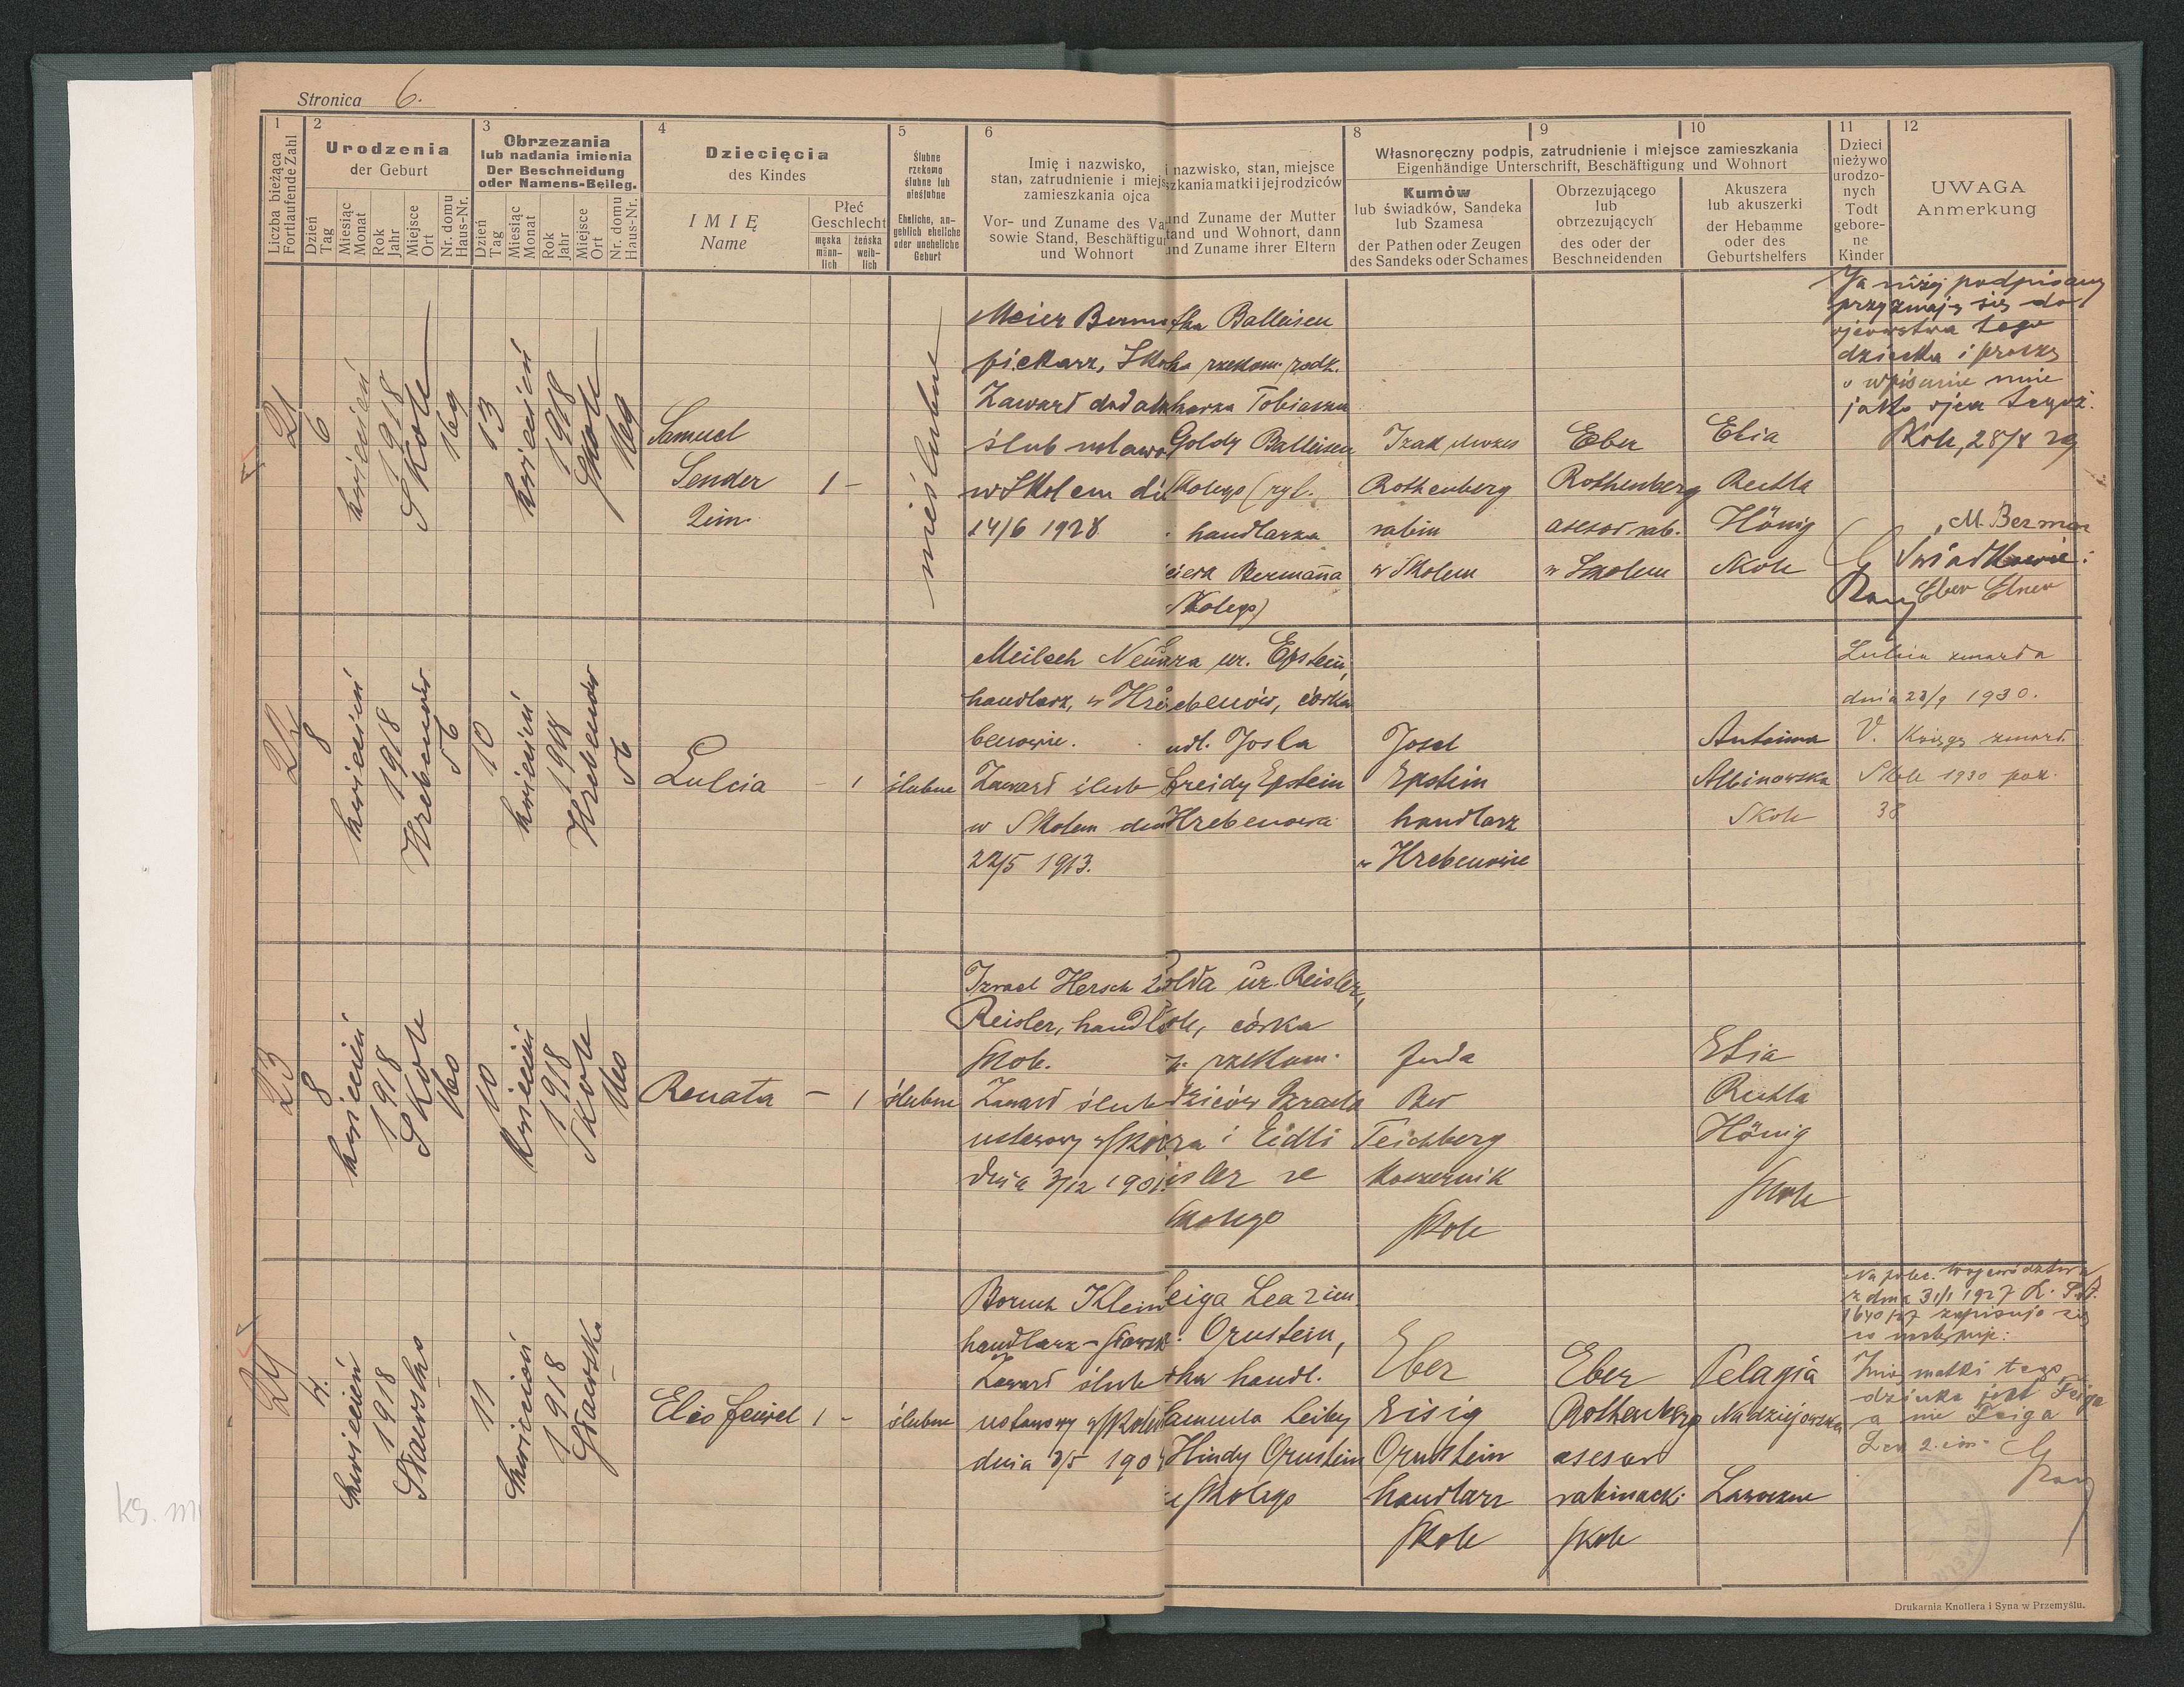 Stronica 6.
1
Liczba bieżąca
Fortlaufende Zahl
2
Urodzenia
der Geburt
Dzień
Tag
Miesiąc
Monat
Rok
Jahr
Miejsce
Ort
Nr. domu
Haus-Nr.
3
Obrzezania
lub nadania imienia
Der Beschneidung
oder Namens-Beileg.
Dzień
Tag
Miesiąc
Monat
Rok
Jahr
Miejsce
Ort
Nr. domu
Haus-Nr.
4
Dziecięcia
des Kindes
IMIĘ
Name
Płeć
Geschlecht
męska
männ-
lich
żeńska
weib-
lich
5
Ślubne
rzekomo
ślubne lub
nieślubne
Eheliche, an-
geblich eheliche
oder uneheliche
Geburt
6
Imię i nazwisko,
stan, zatrudnienie i miejs
zamieszkania ojca
Vor- und Zuname des Va
sowie Stand, Beschäftigu
und Wohnort
i nazwisko, stan, miejsce
zkania matki i jej rodziców
und Zuname der Mutter
tand und Wohnort, dann
und Zuname ihrer Eltern
Własnoręczny podpis, zatrudnienie i miejsce zamieszkania
Eigenhändige Unterschrift, Beschäftigung und Wohnort
8
Kumów
lub świadków, Sandeka
lub Szamesa
der Pathen oder Zeugen
des Sandeks oder Schames
9
Obrzezującego
lub
obrzezujących
des oder der
Beschneidenden
10
Akuszera
lub akuszerki
der Hebamme
oder des
Geburtshelfers
11
Dzieci
nieżywo
urodzo-
nych
Todt
gebore-
ne
Kinder
12
UWAGA
Anmerkung
21
6
kwiecień
1918
Skole
169
13
kwiecień
1918
Skole
169
Samuel
Sender
2 im.
1 -
nieślubne
Meier Berma
piekarz, Skole
Zawarł dodatk
ślub ustawo
w Skolem d
14/6 1928
tka Balleisen
rzekom. rodz.
Tobiasza
Goldy Balleisen
Skolego (ryt.
handlarza
Bermana
Skolego)
Izak Mozes
Rothenberg
rabin
w Skolem
Eber
Rothenberg
asesor rab.
w Skolem
Elia
Ruchla
Hönig
Skole
Ja niżej podpisany
przyznaję się do
ojcowstwa tego
dziecka i proszę
o wpisanie mnie
jako ojca tegoż.
Skole, 28/8 29
M. Berman
Świadkowie:
Eber Elner
22
8
kwiecień
1918
Hrebenów
56
10
kwiecień
1918
Hrebenów
56
Lulcia
- 1
ślubne
Meilech Neu
handlarz, w Hre
benowie.
Zawarł ślub
w Skolem dnia
22/5 1913.
ur. Epstein,
Hrebenów, córka
udl. Josla
Freidy Epstein
Hrebenowa
Josel
Epstein
handlarz
w Hrebenowie
Antonina
Albinowska
Skole
Lulcia zmarła
dnia 23/9 1930.
V. Księgę zmarł.
Skole 1930 poz.
38
23
8
kwiecień
1918
Skole
160
10
kwiecień
1918
Skole
160
Renata
- 1
ślubne
Izrael Hersch
Reisler, handl
Skole.
Zawarł ślub
ustawowy w Skol
dnia 3/12 190
ur. Reisler,
Skole, córka
rzekom.
dziców Izraela
i Eidli
isler ze
Skolego
Juda
Ber
Teichberg
Koszernik
Skole
Elia
Ruchla
Hönig
Skole
24
4.
kwiecień
1918
Sławsko
11
kwiecień
1918
Sławsko
Elio Feiwel
1 -
ślubne
Boruch Klein
handlarz - Sławsk
Zawarł ślub
ustawowy w Skolem
dnia 3/5 190
eiga Lea 2 im.
Ornstein,
tka handl.
amuela Leiby
Hindy Ornstein
ze Skolego
Eber
Eisig
Ornstein
handlarz
Skole
Eber
Rothenberg
asesor
rabinacki
Skole
Pelagia
Nadziejowska
Ławoczne
Na polec. Województwa
z dnia 31/1 1927 L.
1640/27 zapisuje się
co następuje:
Imię matki tego
dziecka jest Feiga
a nie Feiga
Lea 2. im.
Drukarnia Knollera i Syna w Przemyślu.